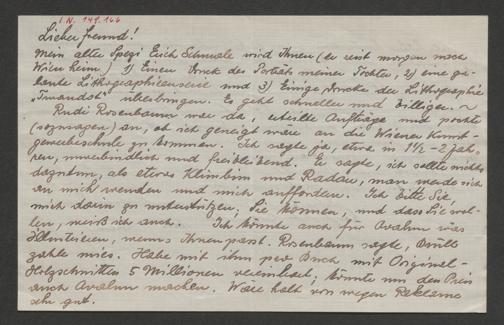 I.N. 149.166
Lieber Freund!
Mein alter Spezi Erich Schmale wird Ihnen (er reist morgen nach
Wien heim) 1) Einen Druck des Porträts meiner Tochter, 2) eine ge-
Lithographien und 3) Einige Drucke der Lithographie
überbringen. Es geht schneller und billiger. ~
Rudi Rosenbaum war da, erteilte Aufträge und pochte
(sozusagen) an, ob ich geneigt wäre an die Wiener Kunst-
gewerbeschule zu kommen. Ich sagte ja, etwa in 1½-2 Jah-
ren, unverbindlich und freibleibend. Er sagte, ich sollte nichts
dazutun, als etwas Klimbim und Radau, man werde sich
an mich wenden und mich auffordern. Ich bitte Sie,
mich darin zu unterstützen, Sie können, und dass Sie wol-
len, weiß ich auch. Ich könnte auch für Avalun was
illustrieren, wenns Ihnen passt. Rosenbaum sagte, 
zahle mies. Habe mit ihm pro Buch mit Original-
Holzschnitten 5 Millionen vereinbart; könnte um den Preis
auch Avalun machen. Wäre halt von wegen Reklame
sehr gut.